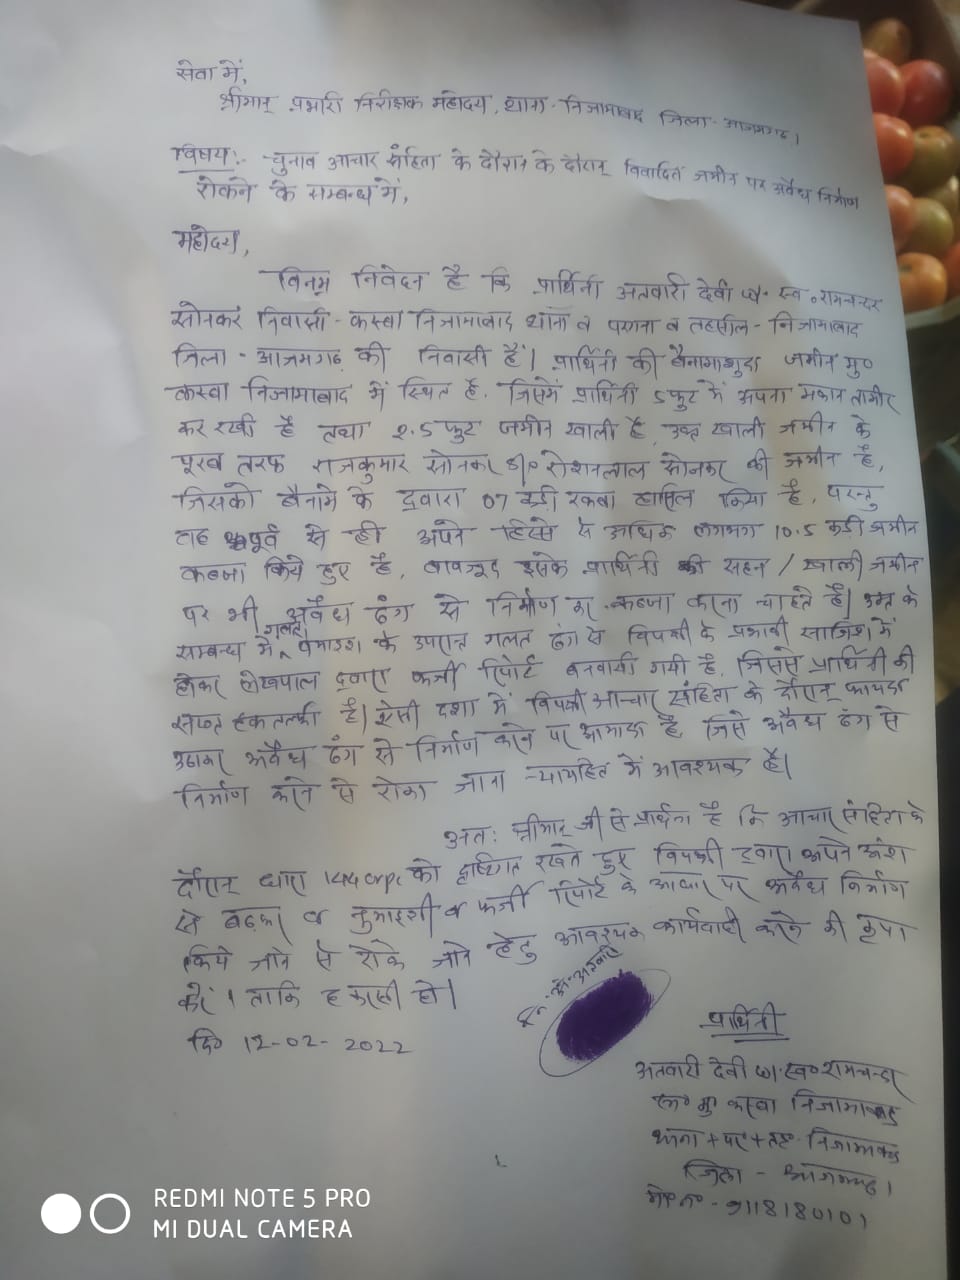 सेवा में,
श्रीमान् प्रभारी निरीक्षक महोदय, थाना - निजामाबाद जिला - आजमगढ़।
विषय:- चुनाव आचार संहिता के दौरान के दौरान् विवादित जमीन पर अवैध निर्माण
रोकने के सम्बन्ध में,
महोदय,
विनम्र निवेदन है कि प्रार्थिनी अतवारी देवी w॰ स्व॰ रामचन्दर
सोनकर निवासी - कस्बा निजामाबाद थाना व परगना व तहसील - निजामाबाद
जिला - आजमगढ़ की निवासी हैं। प्रार्थिनी की बैनामाशुदा जमीन मु॰
कस्बा निजामाबाद में स्थित है, जिसमें प्रार्थिनी 5 फुट में अपना मकान तामीर
कर रखी है तथा 2.5 फुट जमीन खाली है, उक्त खाली जमीन के
पूरब तरफ राजकुमार सोनकर s/o रोशनलाल सोनकर की जमीन है,
जिसको बैनामे के द्वारा 07 कड़ी रकबा हासिल किया है, परन्तु
वह पूर्व से ही अपने हिस्से से अधिक लगभग 10.5 कड़ी जमीन
कब्जा किये हुए है, बावजूद इसके प्रार्थिनी की सहन / खाली जमीन
पर भी अवैध ढंग से निर्माण कर कब्जा करना चाहते हैं। उक्त के
सम्बन्ध में गलत पैमाइश के उपरान्त गलत ढंग से विपक्षी के प्रभावी साजिश में
होकर लेखपाल द्वारा फर्जी रिपोर्ट बनवायी गयी है, जिससे प्रार्थिनी की
सख्त हकतल्फी है। ऐसी दशा में विपक्षी आचार संहिता के दौरान् फायदा
उठाकर अवैध ढंग से निर्माण करने पर आमादा है, जिसे अवैध ढंग से
निर्माण करने से रोका जाना न्यायहित में आवश्यक है।
अतः श्रीमान् जी से प्रार्थना है कि आचार संहिता के
दौरान् धारा 144 crpc को दृष्टिगत रखते हुए विपक्षी द्वारा अपने अंश
से बढ़कर व नुमाइशी व फर्जी रिपोर्ट के आधार पर अवैध निर्माण
किये जाने से रोके जाने हेतु आवश्यक कार्यवाही करने की कृपा
करें। ताकि हकरसी हो।
दि॰ 12-02-2022
प्रार्थिनी
अतवारी देवी w/॰ स्व॰ रामचन्दर
सा॰ मु॰ कस्बा निजामाबाद
थाना + पर + तह॰ निजामाबाद
जिला - आजमगढ़।
मो॰ न॰ - 9118180101
REDMI NOTE 5 PRO
MI DUAL CAMERA